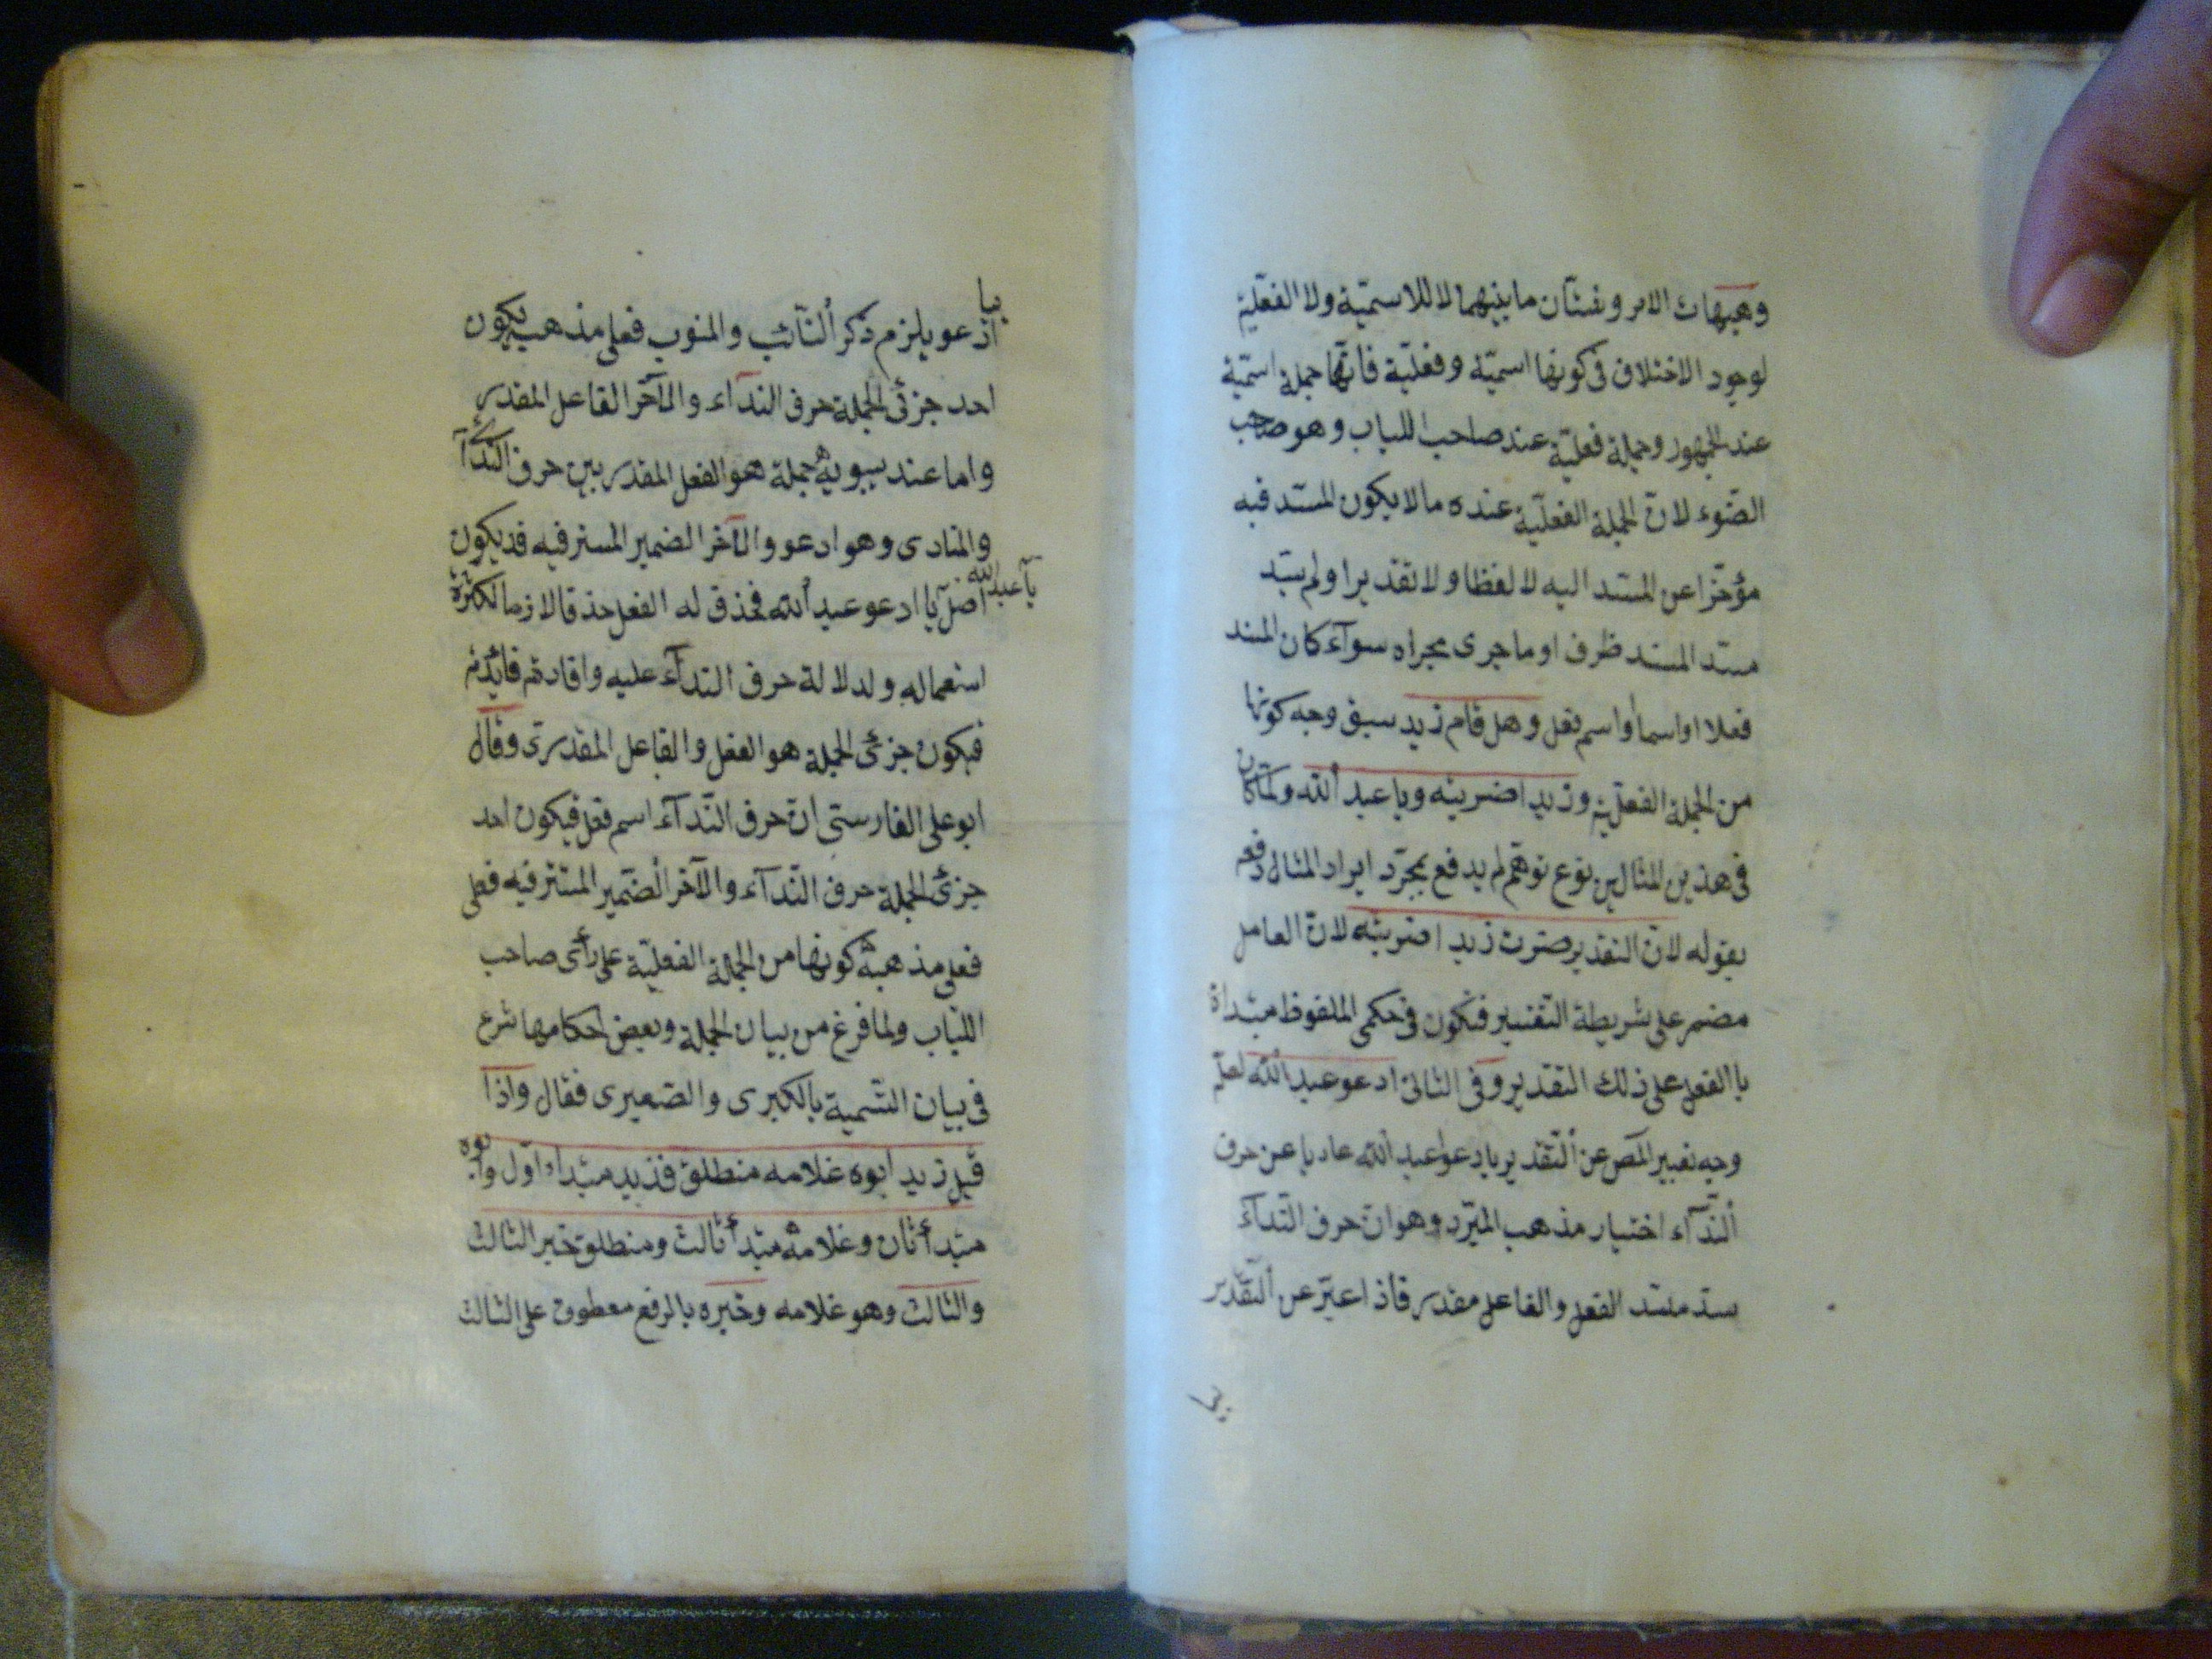 وهيهات الامر وشتان ما بينهما لا للاسميّة ولا الفعليّة
لوجود الاختلاف فى كونها اسميّة وفعليّة فانّها جملة اسميّة
عند الجمهور وجملة فعليّة عند صاحب اللباب وهو صاحب
الضّوء لانّ الجملة الفعليّة عنده ما لا يكون المسند فيه
مؤخّرا عن المسند اليه لا لفظا ولا تقديرا ولم يسّد
مسّد المسند ظرف او ما جرى مجراه سوآء كان المسند
فعلا او اسما او اسم فعل وهل قام زيد سبق وجه كونها
من الجملة الفعليّة وزيد اضربته ويا عبد الله ولمّا كان
فى هذين المثالين نوع توهّم لم يدفع بمجرّد ايراد المثال دفعه
بقوله لانّ التقدير ضربت زيد اضربته لانّ العامل
مضمر على شريطة التّفسير فتكون فى حكمى الملفوظ مبتدأة
با الفعل على ذلك التقدير وفى الثانى ادعو عبد الله لعلّ
وجه تعبير المص عن التّقدير يا ادعو عبد الله عاديا عن حرف
النّدآء اختيار مذهب المبرّد وهو انّ حرف النّدآء
سدّ مسّد الفعل والفاعل مقدر فاذ اعبّر عن التّقدير
بيا
ادعو يلزم ذكر النّائب والمنوب فعلى مذهبه يكون
احد جزئى الجملة حرف الندآء والآخر الفاعل المقدر
واما عند سيبويه جملة هو الفعل المقدر بين حرف النّدآء
والمنادى وهو ادعو والآخر الضمير المستتر فيه فديكون
يا عبد الله
اصل يا ادعو عبد الله فحذف له الفعل حذفا لازما لكثرة
استعماله ولدلالة حرف النّدآء عليه وافادته فائدته
فيكون جزئى الجملة هو الفعل والفاعل المقدرى وقال
ابو على الفارسىّ انّ حرف النّدآء اسم فعل فيكون احد
جزئى الجملة حرف النّدآء والآخر الضّمير المستتر فيه فعلى
فعلى مذهبه كونها من الجملة الفعليّة على رأى صاحب
اللباب ولما فرغ من بيان الجملة وبعض احكامها شرع
فى بيان التّسمية بالكبرى والصّغيرى فقال واذا
قيل زيد ابوه غلامه منطلق فزيد مبتداء اوّل وابوه
مبتدأ ثان وغلامه مبتدأ ثالث ومنطلق خبر الثالث
والثالث وهو غلامه وخبره بالرفع معطوف على الثالث